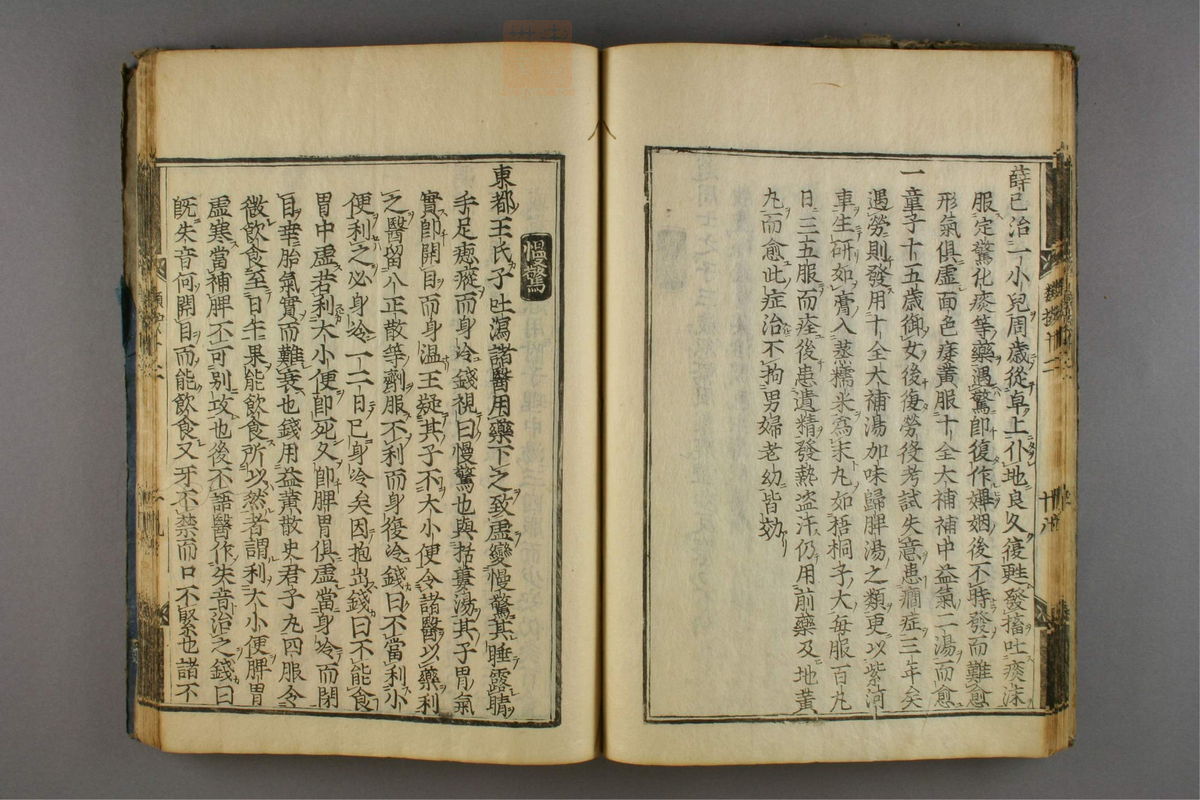 薛已治一小兒周歲從卓上仆地良久復甦發搐吐痰沫
服定驚化痰等藥遇驚即復作婢姻後不時發而難愈
形氣俱虛面色痿黃服十全大補補中益氣二湯而愈
一童子十五歲御女後復勞役考試失意患癎症三年矣
遇勞則發用十全大補湯加味歸脾湯之類更以紫河
車生研如膏入蒸糯米爲末丸如梧桐子大每服百丸
日三五服而痊後患遺精發熱盗汗仍用前藥及地黃
丸而愈此症治不拘男婦老幼皆効
慢驚
東都王氏子吐瀉諸醫用藥下之致虛變慢驚其睡露睛
手足瘛瘲而身冷錢視曰慢驚也與括蔞湯其子胃氣
實即開目而身温王疑其子不大小便令諸醫以藥利
之醫留八正散等劑服不利而身復冷錢曰不當利小
便利之必身冷一二日已身冷矣因抱出錢曰不能食
胃中虛若利大小便即死久即脾胃俱虛當身冷而閉
目幸胎氣實而難衰也錢用益黃散史君子丸四服令
微飲食至日午果能飲食所以然者謂利大小便脾胃
虛寒當補脾不可别攻也後不語醫作失音治之錢曰
既失音何開目而能飲食又牙不禁而口不緊也諸不